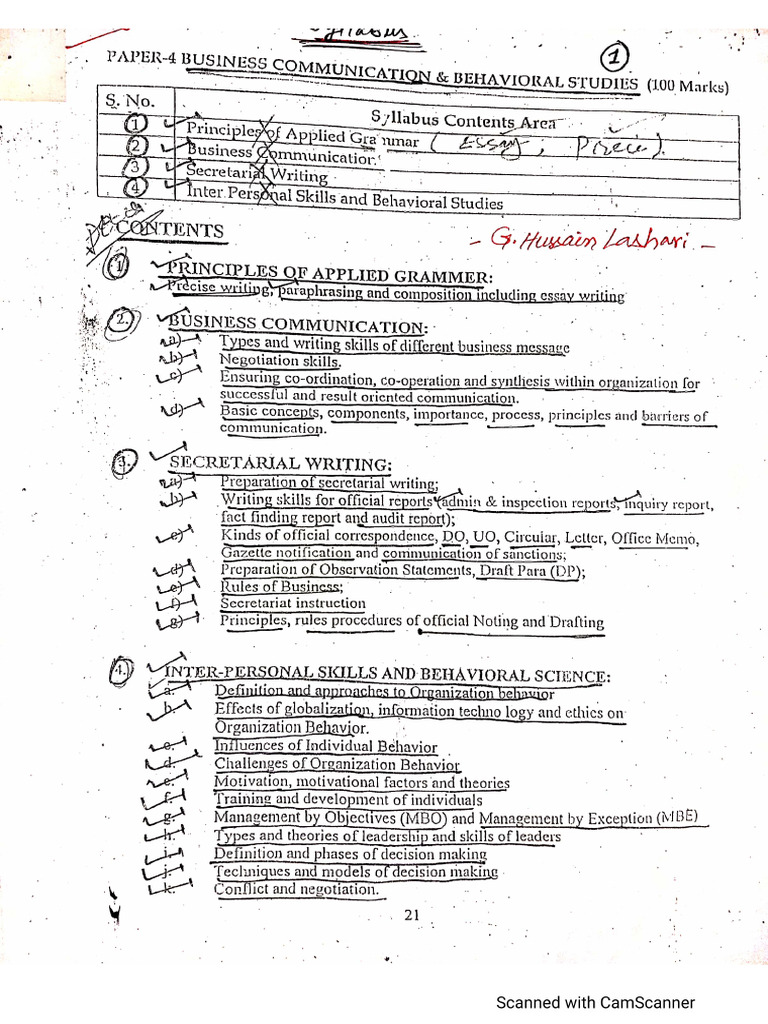 Syllabus
1
PAPER-4 BUSINESS COMMUNICATION & BEHAVIORAL STUDIES (100 Marks)
S. No. Syllabus Contents Area
1 Principles of Applied Grammar (Essay, Precie).
2 Business Communication
3 Secretarial Writing
4 Inter Personal Skills and Behavioral Studies
CONTENTS
- G. Hussain Lashari -
1 PRINCIPLES OF APPLIED GRAMMER:
Precise writing, paraphrasing and composition including essay writing
2. BUSINESS COMMUNICATION:
a) Types and writing skills of different business message
b) Negotiation skills.
c) Ensuring co-ordination, co-operation and synthesis within organization for
successful and result oriented communication.
d) Basic concepts, components, importance, process, principles and barriers of
communication.
3. SECRETARIAL WRITING:
a) Preparation of secretarial writing;
b) Writing skills for official reports (admin & inspection reports, inquiry report,
fact finding report and audit report);
c) Kinds of official correspondence, DO, UO, Circular, Letter, Office Memo,
Gazette notification and communication of sanctions;
d) Preparation of Observation Statements, Draft Para (DP);
e) Rules of Business;
f) Secretariat instruction
g) Principles, rules procedures of official Noting and Drafting
4. INTER-PERSONAL SKILLS AND BEHAVIORAL SCIENCE:
a. Definition and approaches to Organization behavior
b. Effects of globalization, information techno logy and ethics on
Organization Behavior.
c. Influences of Individual Behavior
d. Challenges of Organization Behavior
e. Motivation, motivational factors and theories
f. Training and development of individuals
g. Management by Objectives (MBO) and Management by Exception (MBE)
h. Types and theories of leadership and skills of leaders
i. Definition and phases of decision making
j. Techniques and models of decision making
k. Conflict and negotiation.
21
Scanned with CamScanner